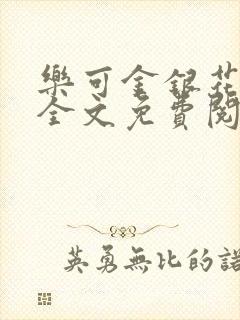 樂可金銀花
全文免費閱
英勇無比的諾